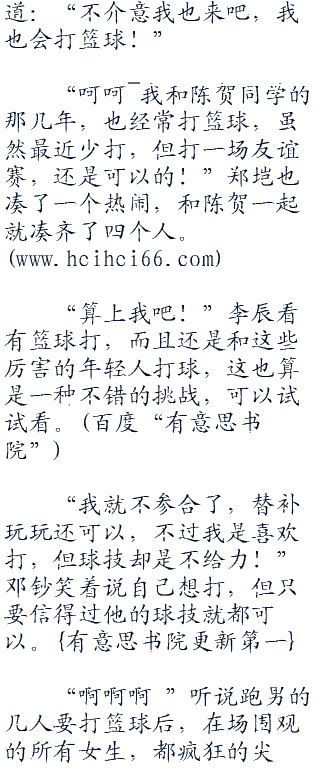 道：“不介意我也来吧，我
也会打篮球！”
“呵呵¯我和陈贺同学的
那几年，也经常打篮球，虽
然最近少打，但打一场友谊
赛，还是可以的！”郑垲也
凑了一个热闹，和陈贺一起
就凑齐了四个人。
(www.hcihci66.com)
“算上我吧！”李辰看
有篮球打，而且还是和这些
厉害的年轻人打球，这也算
是一种不错的挑战，可以试
试看。(百度“有意思书
院”)
“我就不参合了，替补
玩玩还可以，不过我是喜欢
打，但球技却是不给力！”
邓钞笑着说自己想打，但只
要信得过他的球技就都可
以。{有意思书院更新第一}
“啊啊啊 ”听说跑男的
几人要打篮球后，在场围观
的所有女生，都疯狂的尖